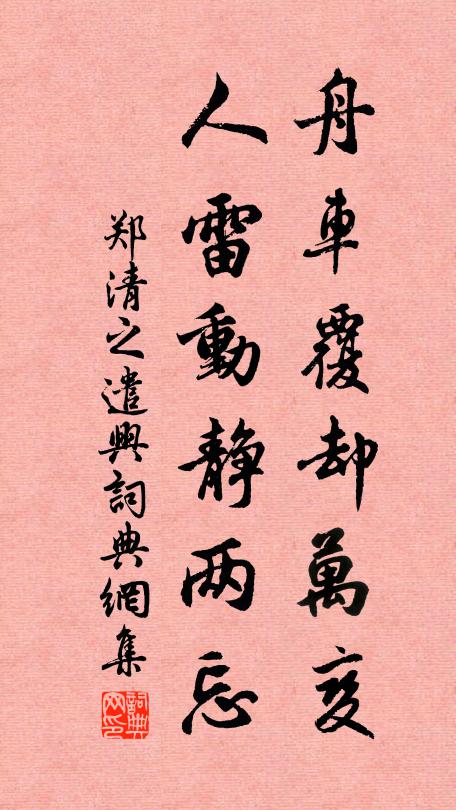 舟車覆却萬变
人雷動静两忘
郑清之遣興詞典網集
詞典网印